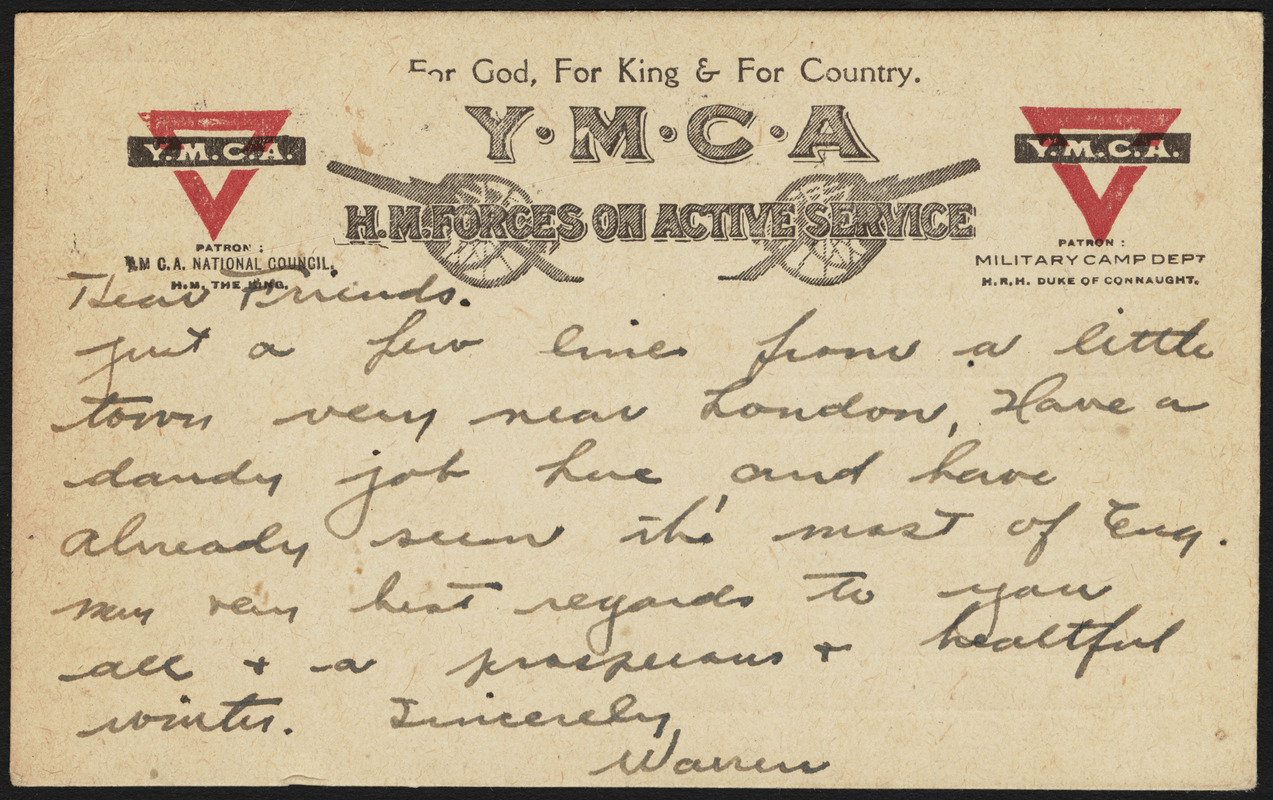 For God, For King & For Country.
Y·M·C·A
Y.M.C.A.
Y.M.C.A.
H.M. FORCES ON ACTIVE SERVICE
PATRON :
Y.M C.A. NATIONAL COUNCIL.
H.M. THE KING.
PATRON :
MILITARY CAMP DEPT
H.R.H. DUKE OF CONNAUGHT.
Dear Friends.
Just a few lines from a little
town very near London, Have a
dandy job here, and have
already seen the most of Eng.
my very best regards to you
all + a prosperous + healthful
winter. Sincerely,
Warren